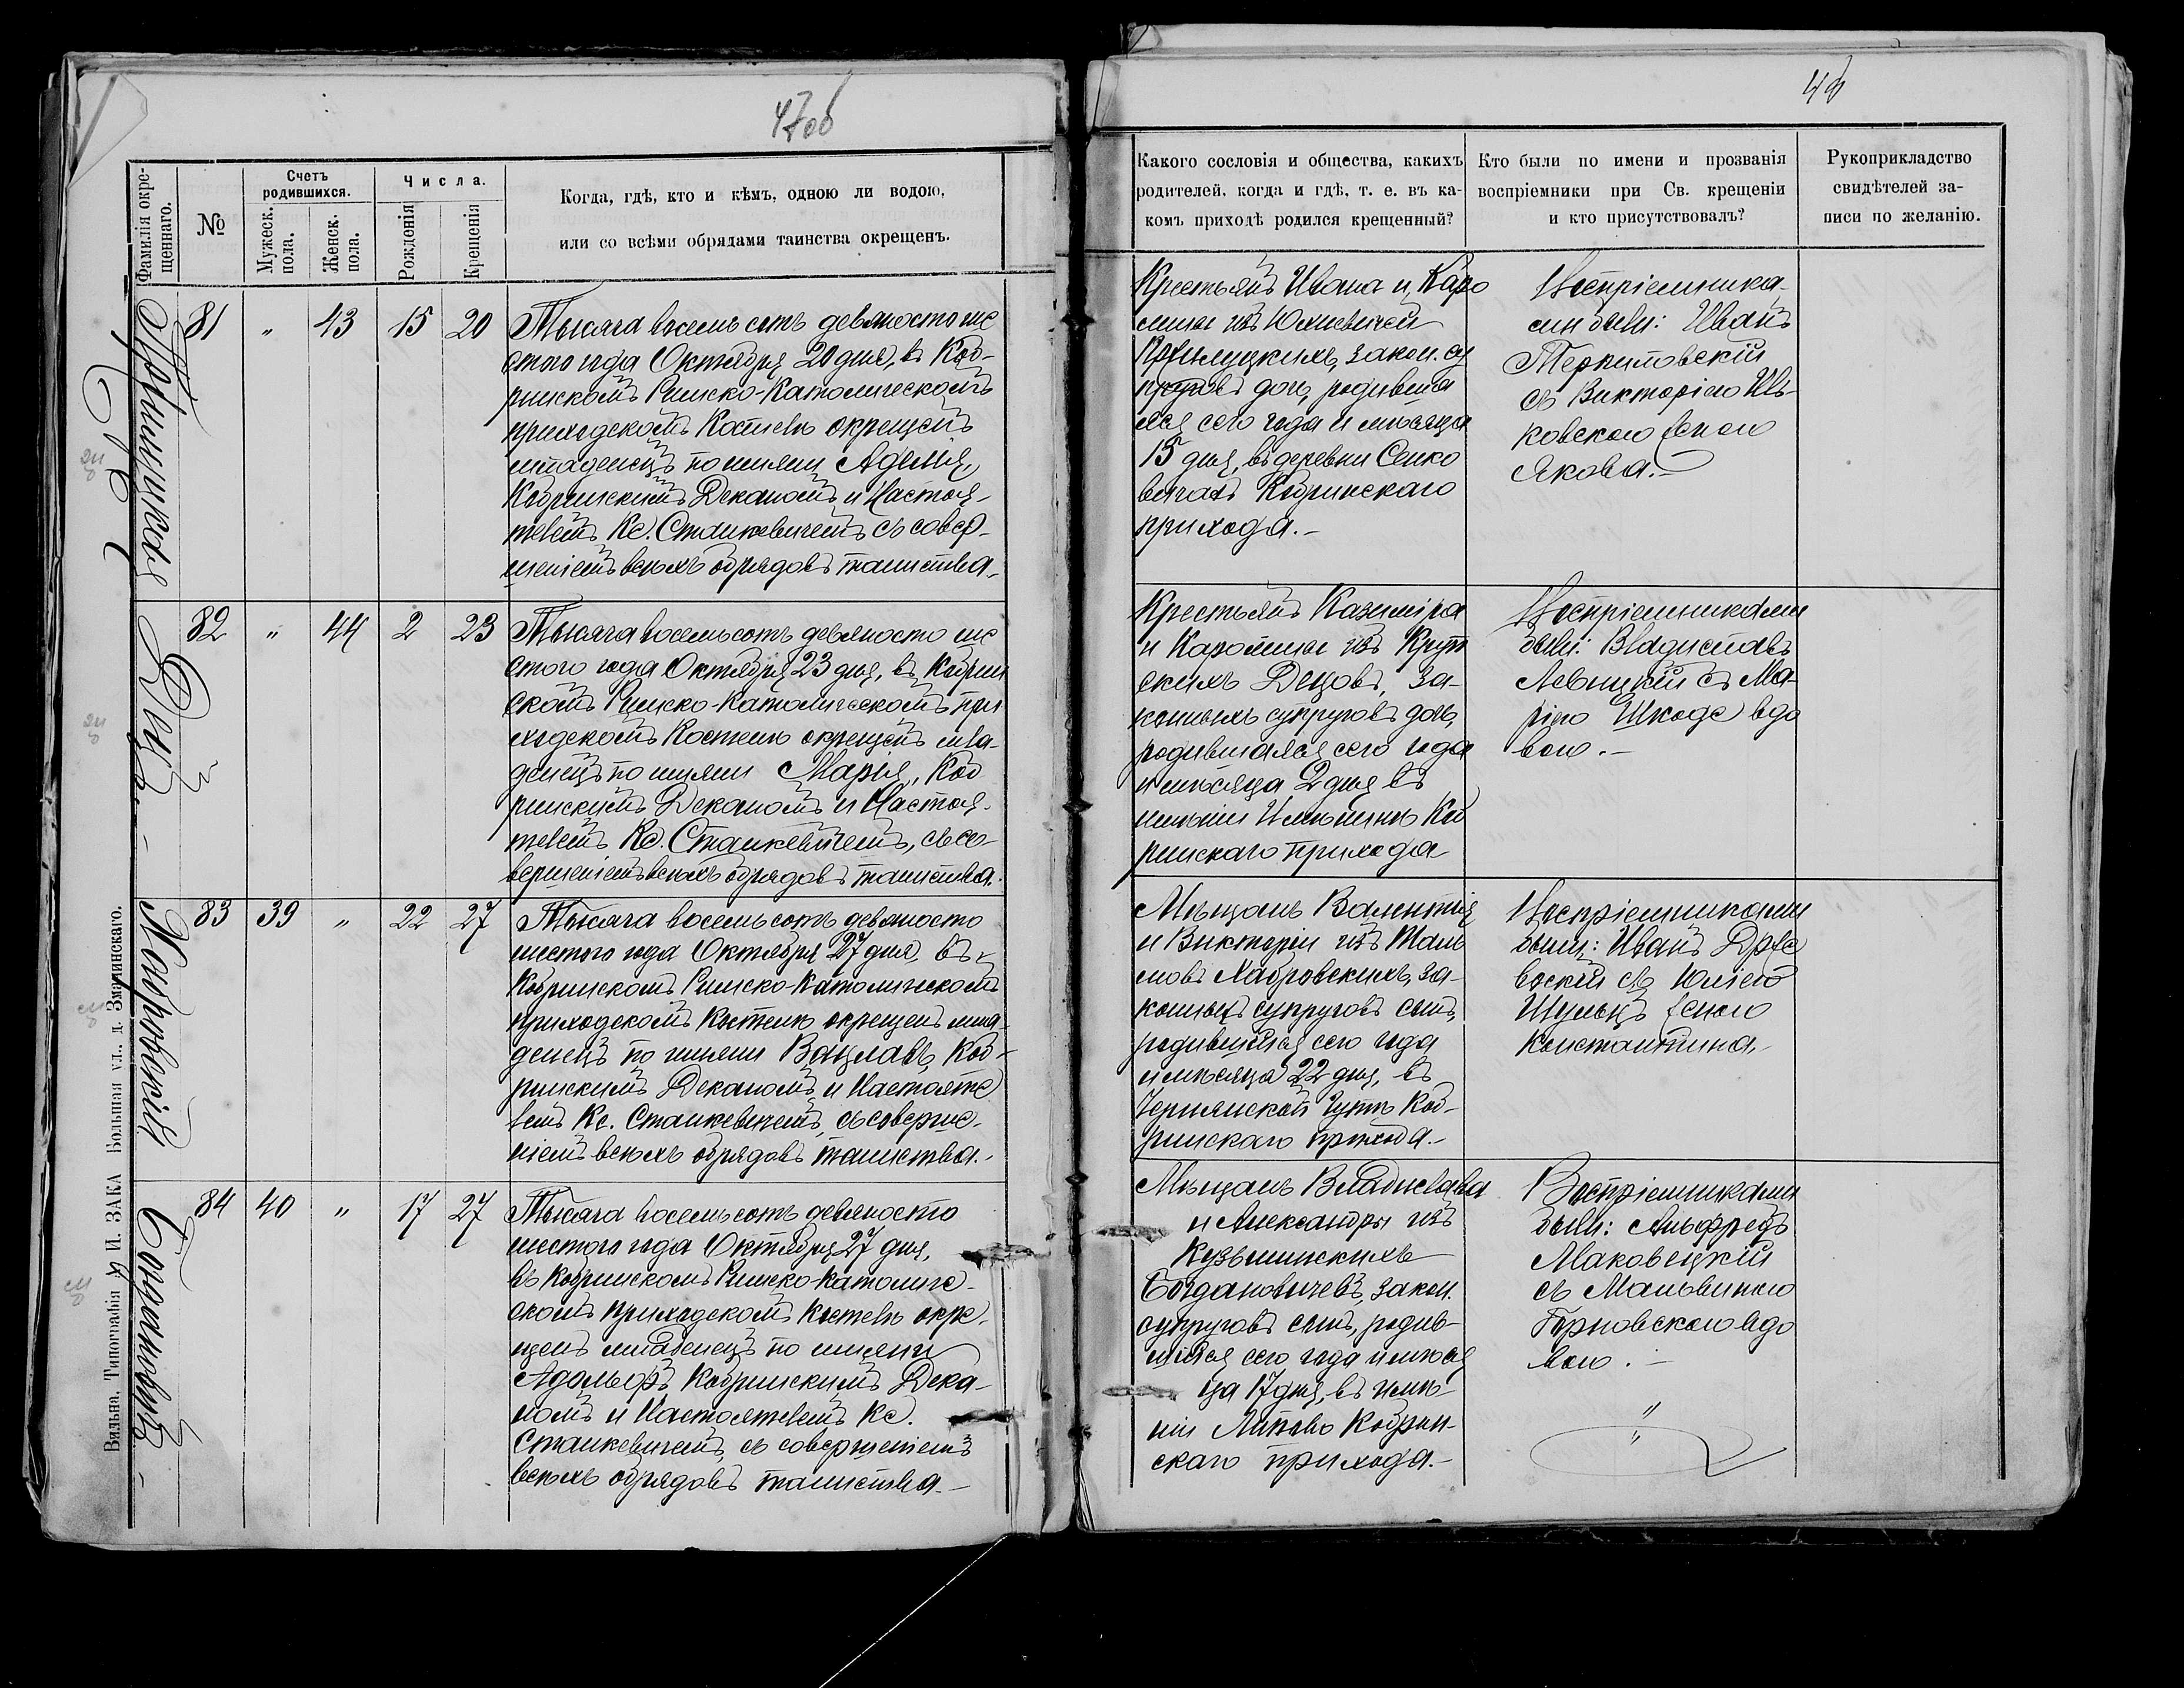 47об
Фамилія окрещеннаго.
№
Счетъ родившихся.
Мужеск. пола.
Женск. пола.
Числа.
Рожденія
Крещенія
Когда, гдѣ, кто и кѣмъ, одною ли водою,
или со всѣми обрядами таинства окрещенъ.
81 " 43 15 20
Тысяча восемь сотъ девяносто ше
стого года Октября 20 дня, въ Коб-
ринскомъ Римско-Католическомъ
приходскомъ Костелѣ окрещенъ
младенецъ по имяни
Кобринскимъ Деканомъ и Настоя-
телемъ Кс. Станкевичемъ съ совер-
шеніемъ всѣхъ обрядовъ таинства.
Децъ.-
82 " 44 2 23
Тысяча восемь сотъ девяносто ше
стого года Октября 23 дня, въ Кобрин
скомъ Римско-Католическомъ при
ходскомъ Костелѣ окрещенъ мла-
денецъ по имяни Марія, Коб
ринскимъ Деканомъ и Настоя-
телемъ Кс. Станкевичемъ, съ со-
вершеніемъ всѣхъ обрядовъ таинства.
Хабровскій
83 39 " 22 27
Тысяча восемь сотъ девяносто
шестого года Октября 27 дня, въ
Кобринскомъ Римско-Католическомъ
приходскомъ Костелѣ окрещенъ мла-
денецъ по имяни Вацлавъ, Коб-
ринскимъ Деканомъ и Настояте
лемъ Кс. Станкевичемъ, съ соверше-
ніемъ всѣхъ обрядовъ таинства.-
Богдановичъ.-
84 40 " 17 27
Тысяча восемь сотъ девяносто
шестого года Октября 27 дня,
въ Кобринскомъ Римско-Католиче-
скомъ приходскомъ Костелѣ окре-
щенъ младенецъ по имяни
Адольфъ, Кобринскимъ Дека-
номъ и Настоятелемъ Кс.
Станкевичемъ, съ совершеніемъ
всѣхъ обрядовъ таинства.-
Вильна. Типографія И. ЗАКА Большая ул., д. Змачинскаго.
Какого сословія и общества, какихъ
родителей, когда и гдѣ, т. е. въ ка-
комъ приходѣ родился крещенный?
Кто были по имени и прозванія
воспріемники при Св. крещеніи
и кто присутствовалъ?
Рукоприкладство
свидѣтелей за-
писи по желанію.
Крестьянъ Ивана и Каро
лины изъ Юхневичей
закон. су
пруговъ дочь, родивша
яся сего года и мѣсяца
15 дня, въ деревни Сенко
вичахъ Кобринскаго
прихода.-
Воспріемника-
ми были: Иванъ
съ Викторіею
ковскою женою
Якова.-
Крестьянъ Казиміра
и Каролины изъ Круп
скихъ Децовъ, за-
конныхъ супруговъ дочь,
родившаяся сего года
и мѣсяца 2 дня въ
имѣніи Коб
ринскаго прихода
Воспріемниками
были: Владиславъ
Левицкій съ Ма-
ріею Шкоде вдо
вою.-
Мѣщанъ Валентія
и Викторіи изъ
мовъ Хабровскихъ, за-
конныхъ супруговъ сынъ,
родившійся сего года
и мѣсяца 22 дня, въ
Чернянской Гутѣ Коб-
ринскаго прихода.-
Воспріемниками
были: Иванъ
вскій съ Юліею
Шульцъ женою
Константина.-
Мѣщанъ Владислава
и Александры изъ
Кузьминскихъ
Богдановичевъ, закон.
супруговъ сынъ, родив-
шійся сего года и мѣся
ца 17 дня, въ имѣ-
ніи Литово Кобрин-
скаго прихода.-
Воспріемниками
были: Альфредъ
Маковецкій
съ Мальвиною
вдо
вою.-